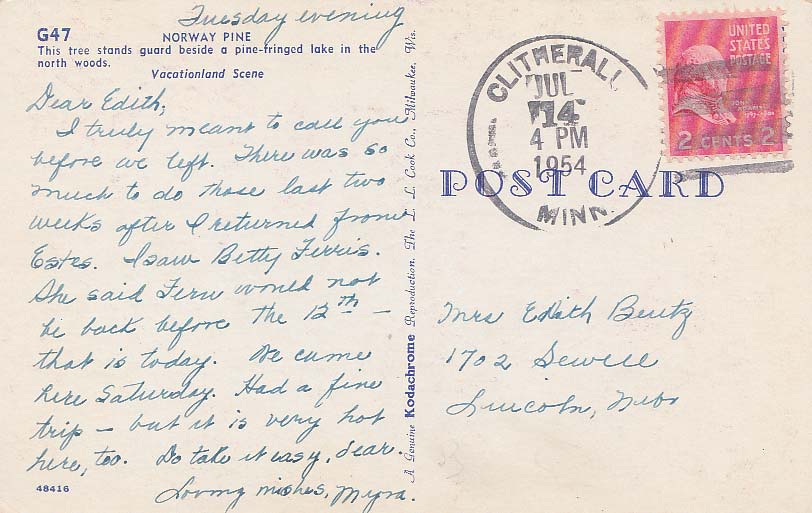 Tuesday evening
G47
NORWAY PINE
This tree stands guard beside a pine-fringed lake in the
north woods.
Vacationland Scene
Dear Edith,
I truly meant to call you
before we left. There was so
much to do those last two
weeks after I returned from
Estes. I saw Betty Ferris.
She said Fern would not
be back before the 12th -
that is today. We came
here Saturday. Had a fine
trip - but it is very hot
here, too. Do take it easy, dear.
Loving wishes, Myra.
48416
A Genuine Kodachrome Reproduction. The L. L. Cook Co., Milwaukee, Wis.
CLITHERALL
JUL
14
4 PM
1954
MINN.
UNITED
STATES
POSTAGE
2 CENTS 2
POST CARD
Mrs Edith Bentz
1702 Sewell
Lincoln, Nebr